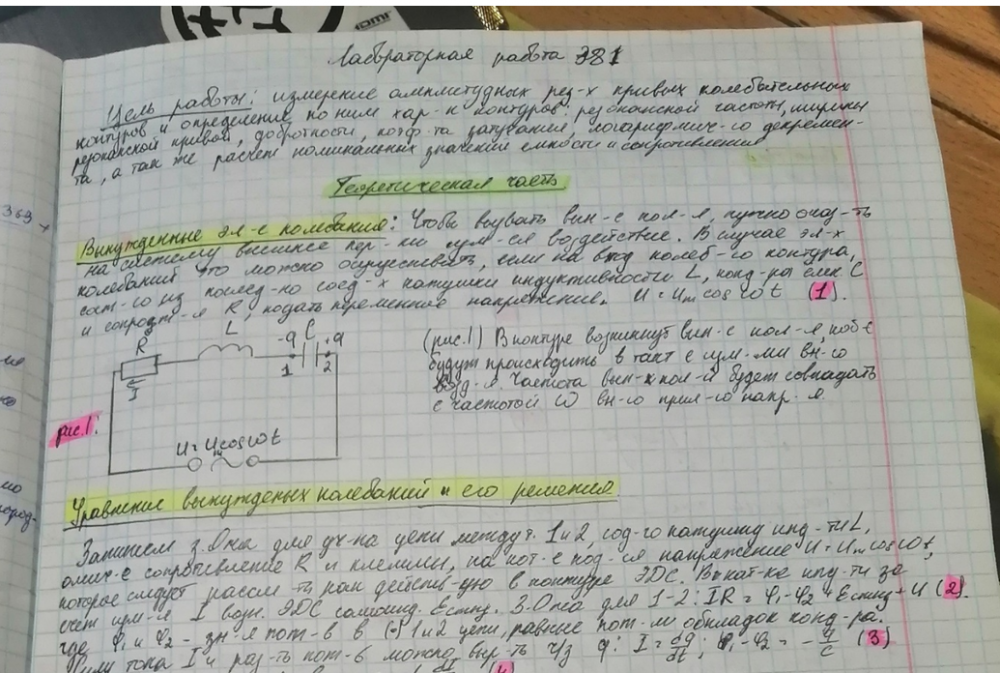 HDMI
Лабораторная работа 381
Цель работы: измерение амплитудных рез-х кривых колебательных
контуров и определение по ним хар-к контуров: резонансной частоты, ширины
резонансной кривой, добротности, коэф-та затухания, логарифмич-го декремен-
та, а так же расчет номинальных значений емкости и сопротивления
Теоретическая часть
369
Вынужденные эл-е колебания: Чтобы вызвать вын-е кол-я, нужно оказ-ть
на систему внешнее пер-ки изм-ся воздействие. В случае эл-х
колебаний это можно осуществить, если на вход колеб-го контура,
сост-го из послед-но соед-х катушки индуктивности L, конд-ра емк C
и сопрот-я R, подать переменное напряжение. U = Um cos ωt (1).
R L C
-q +q
1 2
I
U = Um cos ωt
рис.1.
(рис.1) В контуре возникнут вын-е кол-я, коб-е
будут происходить в такт с изм-ми вн-го
возд-я. Частота вын-х кол-й будет совпадать
с частотой ω вн-го прил-го напр-я.
Уравнение вынужденных колебаний и его решения
Запишем з. Ома для уч-ка цепи между т. 1 и 2, сод-го катушку инд-ти L,
омич-е сопротивление R и клеммы, на кот-е под-ся напряжение U = Um cos ωt,
которое следует рассм-ть как действ-ую в контуре ЭДС. В кат-ке инд-ти за
счет изм-я I возн. ЭДС самоинд. Eсинд. З. Ома для 1-2: IR = φ1-φ2 + Eсинд + U (2).
где φ1 и φ2 - зн-я пот-в в (·) 1 и 2 цепи, равные пот-м обкладок конд-ра.
Силу тока I и раз-ть пот-в можно выр-ть ч/з q: I = dq/dt; φ1-φ2 = -q/C (3)
(4)